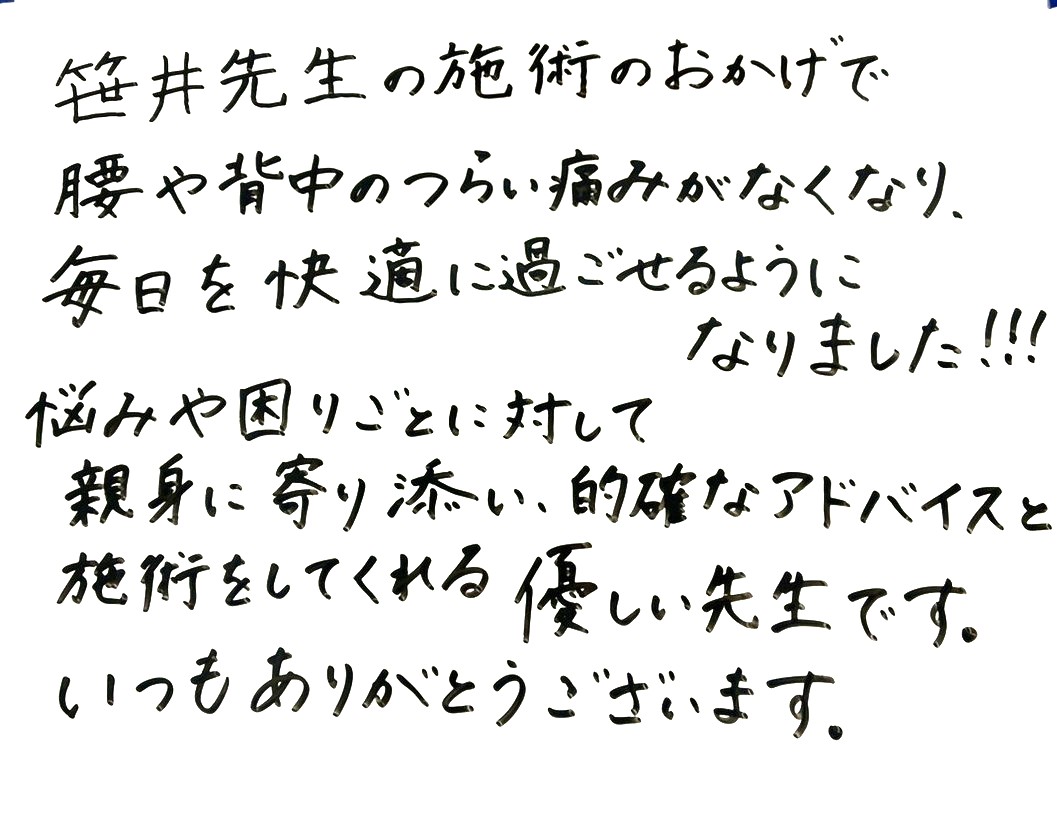 笹井先生の施術のおかげで
腰や背中のつらい痛みがなくなり、
毎日を快適に過ごせるように
なりました!!!
悩みや困りごとに対して
親身に寄り添い、的確なアドバイスと
施術をしてくれる優しい先生です。
いつもありがとうございます。